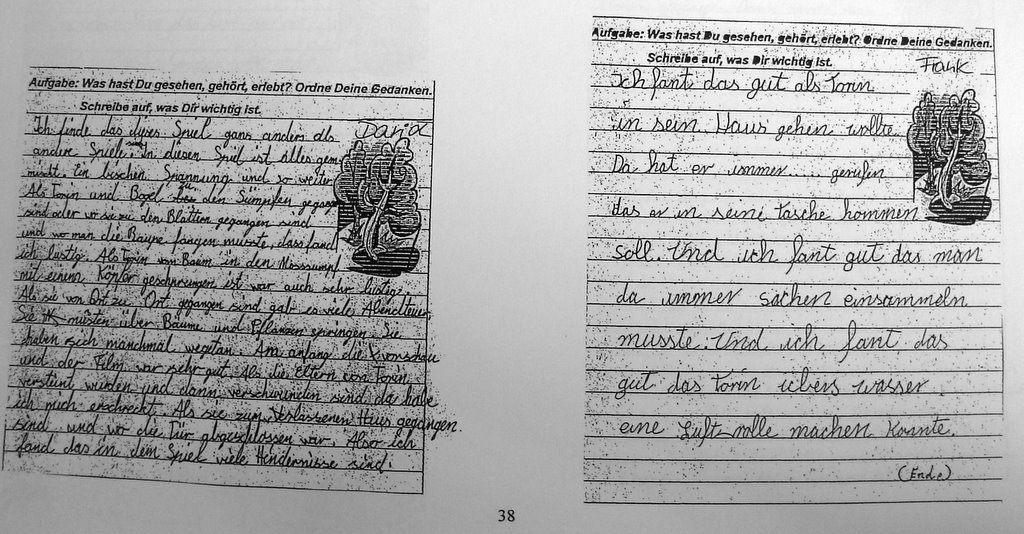 Aufgabe: Was hast Du gesehen, gehört, erlebt? Ordne Deine Gedanken.
Schreibe auf, was Dir wichtig ist.
Darja
Ich finde das dieses Spiel gans anders als
andere Spiele. In diesen Spiel ist alles gem
mischt. Ein bischen Spannung und so weiter.
Als Torin und Bogol den Sümpfen gegang
sind oder wo sie zu den Blättern gegangen sind
und wo man die Baupe fangen musste, dass fand
ich lustig. Als Torin von Baum in den Moossumpf
mit einem Köpfer gesprungen ist war auch sehr lustig.
Als sie von Ort zu Ort gegangen sind gab es viele Abendteuer.
Sie müsten über Bäume und Pflanzen springen. Sie
haben sich manchmal wegetan. Am anfang die Vorschau
und der Film war sehr gut. Als die Eltern von Torin
versteint wurden und dann verschwunden sind da habe
ich mich erschreckt. Als sie zum Verlassenen Haus gegangen
sind und wo die Tür abgeschlossen war. Aber ich
fand das in dem Spiel viele Hindernisse sind.
Aufgabe: Was hast Du gesehen, gehört, erlebt? Ordne Deine Gedanken.
Schreibe auf, was Dir wichtig ist.
Frank
Ich fant das gut als Torin
in sein Haus gehen wollte.
Da hat er immer..... gerufen
das er in seine tasche kommen
soll. Und ich fant gut das man
da immer sachen einsammeln
musste. Und ich fant das
gut das Torin übers wasser
eine Luft-rolle machen konnte.
(Ende)
38